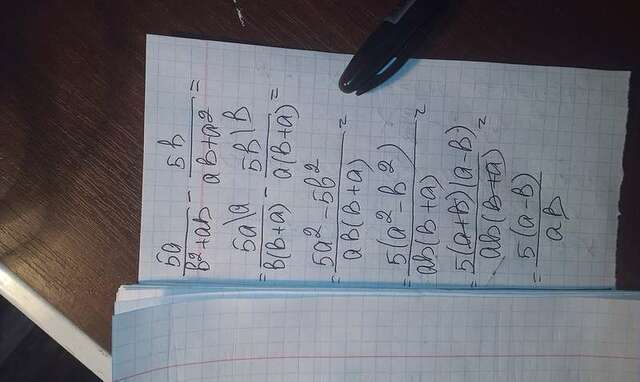 5a/(b²+ab) - 5b/(ab+a²) =
= 5a\a/(b(b+a)) - 5b\b/(a(b+a)) =
= (5a²-5b²)/(ab(b+a)) =
= 5(a²-b²)/(ab(b+a)) =
= 5(a+b)(a-b)/(ab(b+a)) =
= 5(a-b)/(ab)